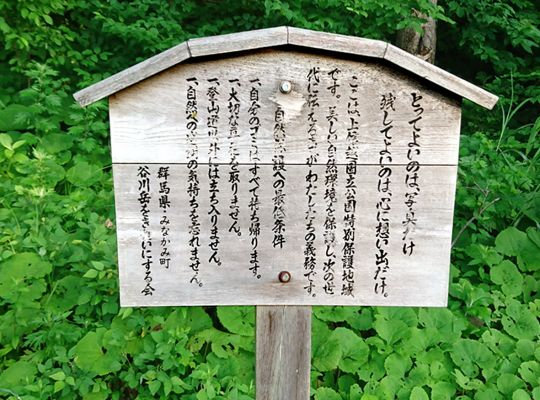 とってよいのは、写真だけ
残してよいのは、心に想い出だけ。
ここは上信越国立公園特別保護地域
です。美しい自然環境を保護し、次の世
代に伝える事がわたしたちの義務です。
自然保護への最低条件
一、自分のゴミはすべて持ち帰ります。
一、大切な草花を取りません。
一、登山道以外には立ち入りません。
一、自然への感謝の気持ちを忘れません。
群馬県・みなかみ町
谷川岳をきれいにする会